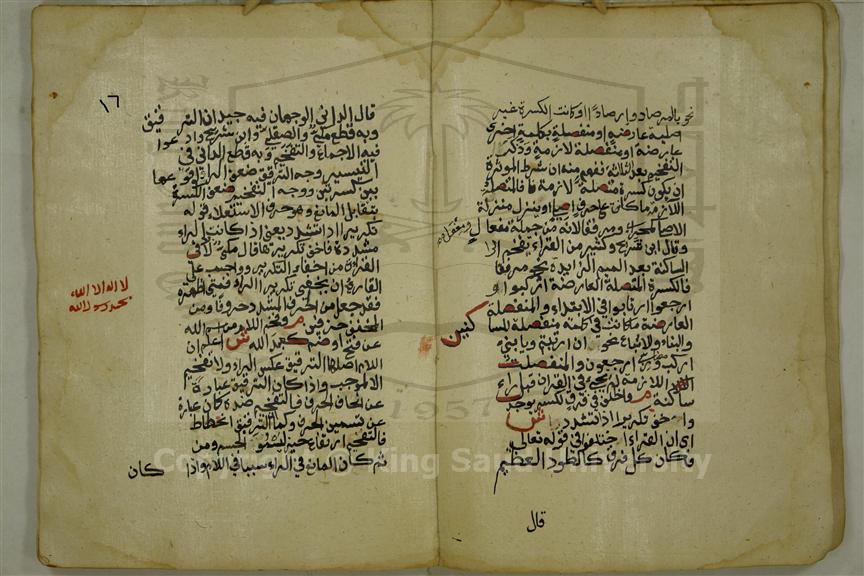 نحو بالمرصاد وإرصادا او كانت الكسرة غير
اصلية عارضة او منفصلة بكلمة اخرى
عارضة او منفصلة لازمة وذكر
التفخيم بعد ثلاثة ففهم منه ان شرط الموثرة
ان يكون كسرة متصلة لازمة فالمتصلة
اللازمة ما كان على حرف اصلي او ينزل منزلة
الاصلي ومرفقا لانه من جملة مفعال
ومفعول
وقال ابن شريح وكثير من القراء تفخيم الرا
الساكنة بعد الميم الزايدة نحو مرفقا
فالكسرة المتصلة العارضة اركبوا
ارجعوا ارتابوا في الابتداء والمنفصلة
العارضة ما كانت في كلمة منفصلة للسا
كنين
والبناء والاتباع نحو ان ارتبتم ويا بني
اركب ارجعون والمنفصلة
اللازمة لم تجئ في القران قبل راء
ساكنة م والخلق في فرق لكسر يوجد
واخف تكريرا اذا تشدد ش
اي ان القراء اختلفوا في قوله تعالى
فكان كل فرق كالطود العظيم
قال
١٦
قال الداني الوجهان فيه جيدان الترقيق
وبه قطع مكي والصقلي وابن شريح وادعوا
فيه الاجماع والتفخيم وبه قطع الداني في
التيسير وجه الترقيق ضعف الراء لوقوعها
بين كسرتين ووجه التفخيم ضعف الكسرة
بتقابل المانع وهو حرف الاستعلاء قوله
تكريرا اذا تشدد يعني اذا كانت الراء
مشددة فاخف تكريرها قال مكي لا في
القراءة من اخفاء التكرير وواجب على
القاري ان يخفي تكرير الراء فمتى اظهره
فقد جعل من الحرف المشدد حروفا ومن
المخفف حرفين م وفخم اللام من اسم الله
عن فتح او ضم كعبد الله ش اعلم ان
اللام اصلها الترقيق عكس الراء ولا تفخم
الا لموجب واذا كان الترقيق عبارة
عن انحاف الحرف فالتفخيم ضده كان عبارة
عن تسمين الحرف وكما الترقيق انحطاط
فالتفخيم ارتفاع
ثم كان المانع في الراء سببا في اللام واذا كان
لا اله الا الله
محمد رسول الله
Copyright © King Saud University
1957